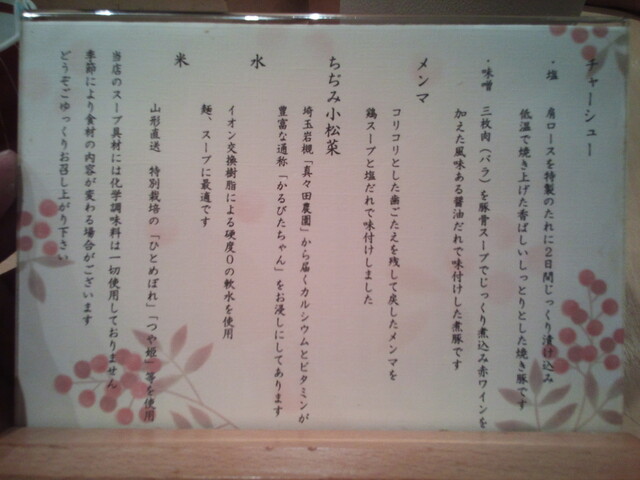 チャーシュー
・塩　肩ロースを特製のたれに２日間じっくり漬け込み
低温で焼き上げた香ばしいしっとりとした焼き豚です
・味噌　三枚肉（バラ）を豚骨スープでじっくり煮込み赤ワインを
加えた風味ある醤油だれで味付けした煮豚です
メンマ
コリコリとした歯ごたえを残して戻したメンマを
鶏スープと塩だれで味付けしました
ちぢみ小松菜
埼玉岩槻「真々田農園」から届くカルシウムとビタミンが
豊富な通称「かるびたちゃん」をお浸しにしてあります
水
イオン交換樹脂による硬度０の軟水を使用
麺、スープに最適です
米
山形直送　特別栽培の「ひとめぼれ」「つや姫」等を使用
当店のスープ具材には化学調味料は一切使用しておりません
季節により食材の内容が変わる場合がございます
どうぞごゆっくりお召し上がり下さい